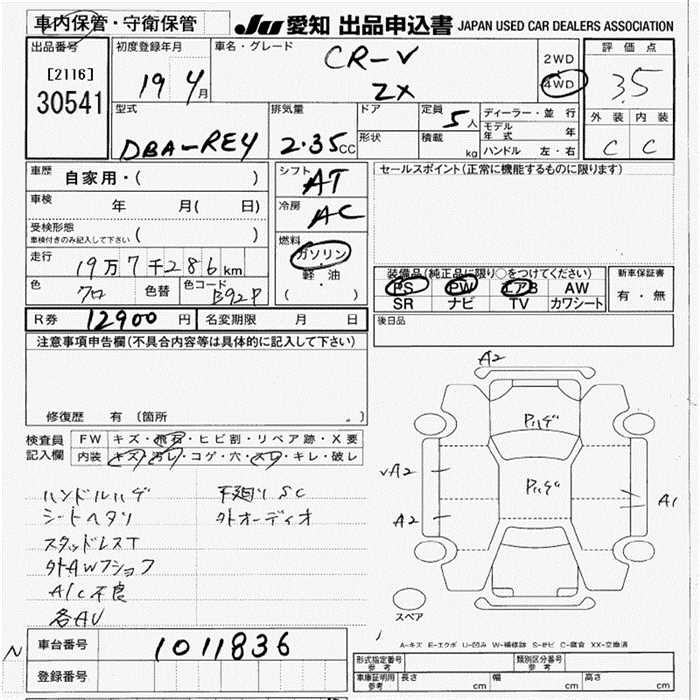 車内保管・守衛保管
JU 愛知 出品申込書 JAPAN USED CAR DEALERS ASSOCIATION
出品番号
[2116]
30541
初度登録年月
19 4月
車名・グレード
CR-V
ZX
2WD
4WD
評価点
3.5
外装 内装
C C
型式
DBA-RE4
排気量
2.35cc
ドア
形状
定員 5人
積載 kg
ディーラー・並行
モデル年式 年
ハンドル 左・右
車歴 自家用・( )
車検 年 月( 日)
受検形態
車検付きのみ記入して下さい ( )
走行 19万7千286km
色 クロ 色替 色コード B92P
シフト AT
冷房 AC
燃料
ガソリン
軽・油
( )
セールスポイント(正常に機能するものに限ります)
装備品(純正品に限り○をつけてください)
PS PW エアB AW
SR ナビ TV カワシート
新車保証書
有・無
R券 12900円 名変期限 月 日
後日品
注意事項申告欄(不具合内容等は具体的に記入して下さい)
修復歴 有 〔箇所 〕
検査員
記入欄
FW キズ・飛石・ヒビ割・リペア跡・X要
内装 キズ・汚レ・コゲ・穴・スレ・キレ・破レ
ハンドルハゲ 下廻リSC
シートヘタリ 外オーディオ
スタッドレスT
外AWフショク
A/C不良
各AU
A2
Pハゲ
Pハゲ
A2
A2
A1
スペア
A-キズ E-エクボ U-凹み W-補修跡 S-サビ C-腐食 XX-交換済
N 車台番号 1011836
登録番号
形式指定番号 参考
類別区分番号 参考
車庫証明用 参考 長さ cm 幅 cm 高さ cm